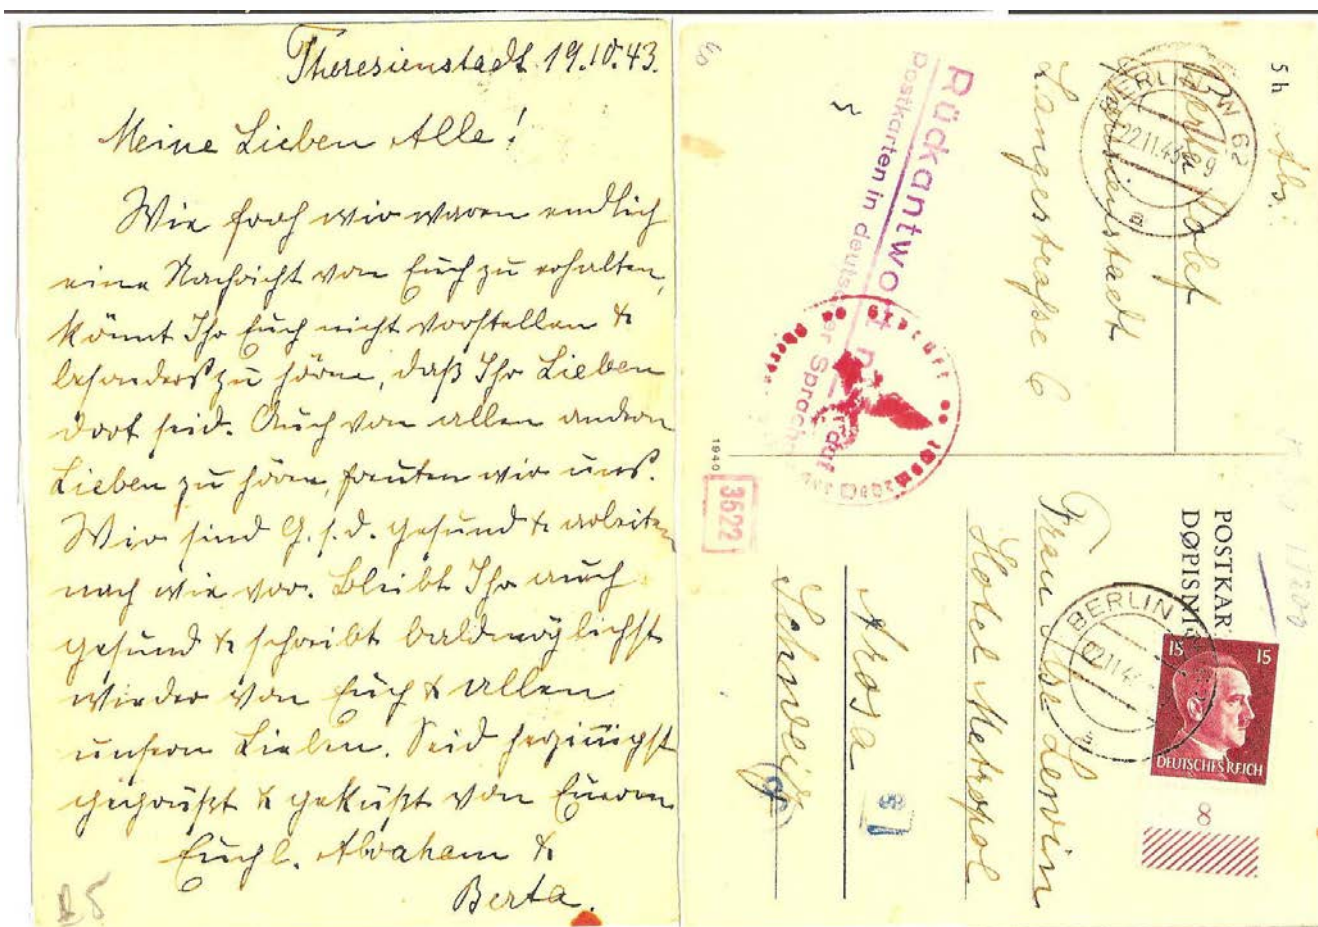 Theresienstadt 19.10.43.
Meine Lieben Alle!
Wie froh wir waren endlich
eine Nachricht von Euch zu erhalten,
könnt Ihr Euch nicht vorstellen &
besonders zu hören, daß Ihr Lieben
dort seid. Auch von allen andern
Lieben zu hören, freuten wir uns.
Wir sind G. s. d. gesund & arbeiten
nach wie vor. Bleibt Ihr auch
gesund & schreibt baldmöglichst
wieder von Euch & allen
unsern Lieben. Seid herzinnigst
gegrüßt & geküßt von Euern
Euch l. Abraham &
Berta.
5 h
Abs:
Berta
Theresienstadt
Langestraße 6
BERLIN SW 62
22.11.43
a
Rückantwort n
Postkarten in deutscher Sprache
Geprüft
1940
3522
POSTKAR
DOPISNI
BERLIN
22.11.4
a
15 15
DEUTSCHES REICH
8
Frau Ilse Lenvin
Hotel Metropol
Arosa
Schweiz